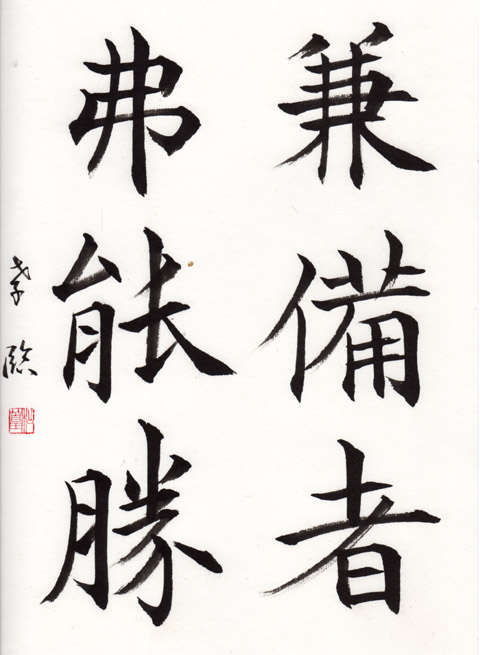 兼備者
弗能勝
臨